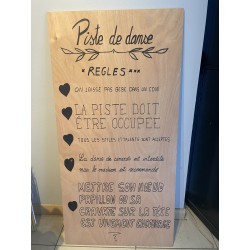 Piste de danse
" REGLES "
ON LAISSE PAS BEBE DANS UN COIN
LA PISTE DOIT
ÊTRE OCCUPÉE
TOUS LES STYLES ET TALENTS SONT ACCEPTES
La danse du canard est interdite
mais le madison est recommandé
METTRE SON NŒUD
PAPILLON OU SA
CRAVATE SUR LA TÊTE
EST VIVEMENT CONSEILLÉ